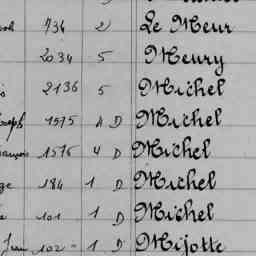 734 2 Le Meur
2034 5 Meury
2136 5 Michel
1575 4 D Michel
1576 4 D Michel
184 1 D Michel
101 1 D Michel
102 1 D Mijotte